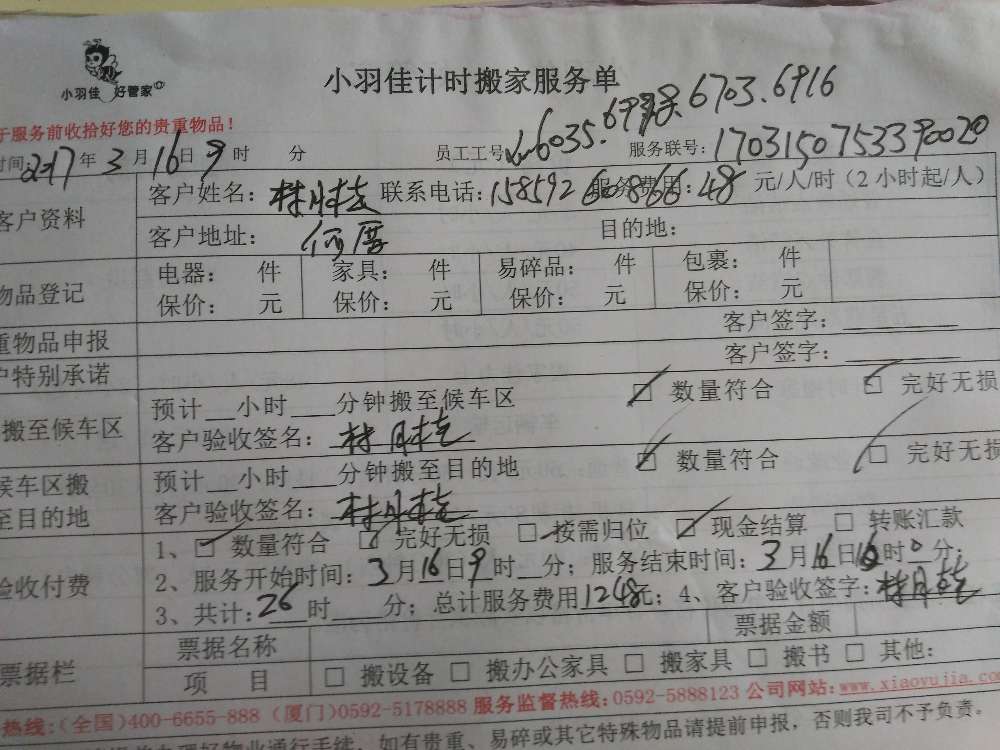 小羽佳 好管家
小羽佳计时搬家服务单
于服务前收拾好您的贵重物品！
时间2017年3月16日9时 分 员工工号 6035. 6703.6916 服务联号:1703150753390020
客户资料 客户姓名: 林月桂 联系电话:15859260866 服务费用:48 元/人/时(2小时起/人)
客户地址: 何厝 目的地:
物品登记 电器: 件 家具: 件 易碎品: 件 包裹: 件
保价: 元 保价: 元 保价: 元 保价: 元
重物品申报 客户签字:
户特别承诺 客户签字:
搬至候车区 预计__小时___分钟搬至候车区 ☑ 数量符合 ☑ 完好无损
客户验收签名: 林月桂
候车区搬 预计__小时___分钟搬至目的地 ☑ 数量符合 ☑ 完好无损
至目的地 客户验收签名: 林月桂
验收付费 1、☑ 数量符合 ☑ 完好无损 ☑ 按需归位 ☑ 现金结算 □ 转账汇款
2、服务开始时间:3月16日9时__分; 服务结束时间:3月16日16时0分;
3、共计:26时___分; 总计服务费用1248元; 4、客户验收签字:林月桂
票据栏 票据名称 票据金额
项 目 □ 搬设备 □ 搬办公家具 □ 搬家具 □ 搬书 □ 其他:
热线:(全国)400-6655-888 (厦门)0592-5178888 服务监督热线:0592-5888123 公司网站:www.xiaoyujia.co
办理好物业通行手续，如有贵重、易碎或其它特殊物品请提前申报，否则我司不予负责。